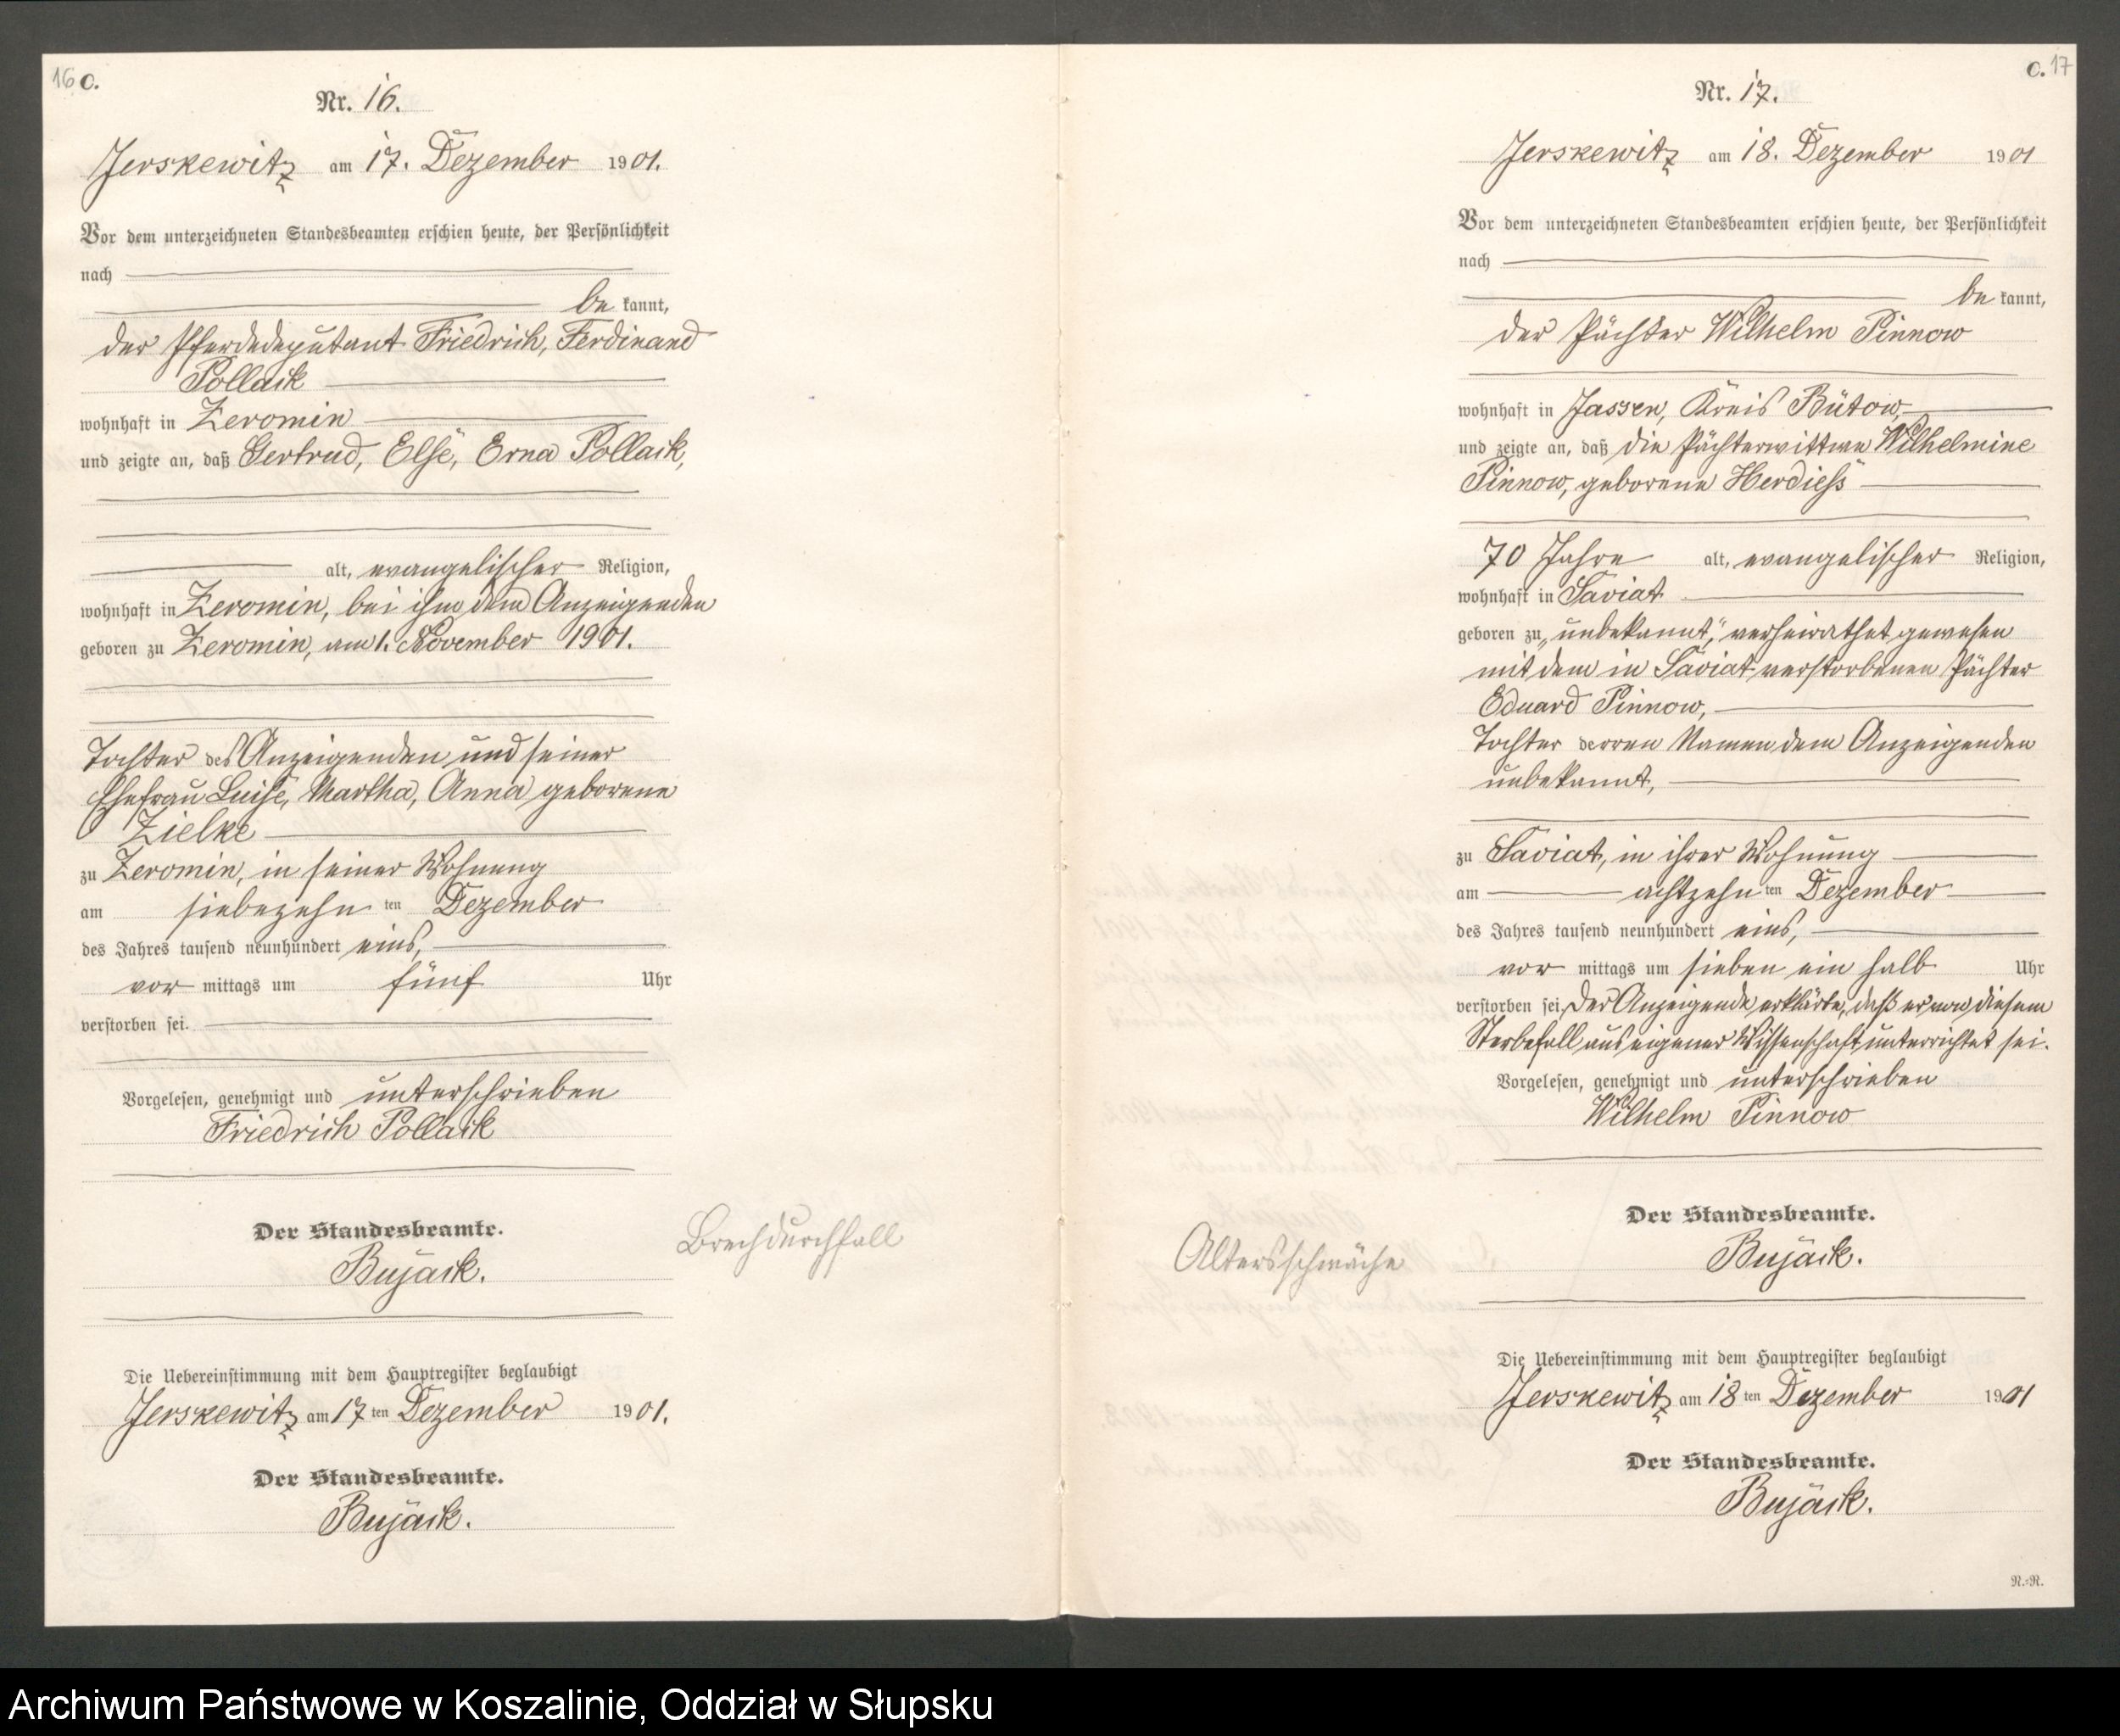 16 C.
Nr. 16.
Jerskewitz am 17. Dezember 1901.
Vor dem unterzeichneten Standesbeamten erschien heute, der Persönlichkeit
nach
be kannt,
der Pferdedeputant Friedrich, Ferdinand
Pollack
wohnhaft in Zeromin
und zeigte an, daß Gertrud, Else, Erna Pollack,
alt, evangelischer Religion,
wohnhaft in Zeromin, bei ihm dem Anzeigenden
geboren zu Zeromin, am 1. November 1901.
Tochter des Anzeigenden und seiner
Ehefrau Luise, Martha, Anna geborene
Zielke
zu Zeromin, in seiner Wohnung
am siebezehn ten Dezember
des Jahres tausend neunhundert eins,
vor mittags um fünf Uhr
verstorben sei.
Vorgelesen, genehmigt und unterschrieben
Friedrich Pollack
Der Standesbeamte.
Bujack.
Brechdurchfall
Die Uebereinstimmung mit dem Hauptregister beglaubigt
Jerskewitz am 17 ten Dezember 1901.
Der Standesbeamte.
Bujack.
C. 17
Nr. 17.
Jerskewitz am 18. Dezember 1901
Vor dem unterzeichneten Standesbeamten erschien heute, der Persönlichkeit
nach
be kannt,
der Pächter Wilhelm Pinnow
wohnhaft in Jassen, Kreis Bütow,
und zeigte an, daß die Pächterwittwe Wilhelmine
Pinnow, geborene Herdiess
70 Jahre alt, evangelischer Religion,
wohnhaft in Saviat
geboren zu „unbekannt,“ verheirathet gewesen
mit dem in Saviat verstorbenen Pächter
Eduard Pinnow,
Tochter deren Namen dem Anzeigenden
unbekannt,
zu Saviat, in ihrer Wohnung
am achtzehn ten Dezember
des Jahres tausend neunhundert eins,
vor mittags um sieben ein halb Uhr
verstorben sei, Der Anzeigende erklärte, daß er von diesem
Sterbefall aus eigener Wissenschaft unterrichtet sei.
Vorgelesen, genehmigt und unterschrieben
Wilhelm Pinnow
Der Standesbeamte.
Bujack.
Altersschwäche
Die Uebereinstimmung mit dem Hauptregister beglaubigt
Jerskewitz am 18 ten Dezember 1901
Der Standesbeamte.
Bujack.
R.=R.
Archiwum Państwowe w Koszalinie, Oddział w Słupsku